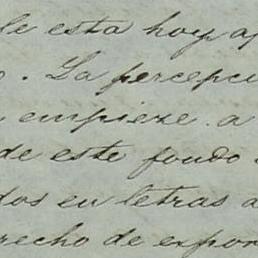 le esta hoy ap
o. La percepci
empieze a
de este fondo
dos en letras a
recho de expor